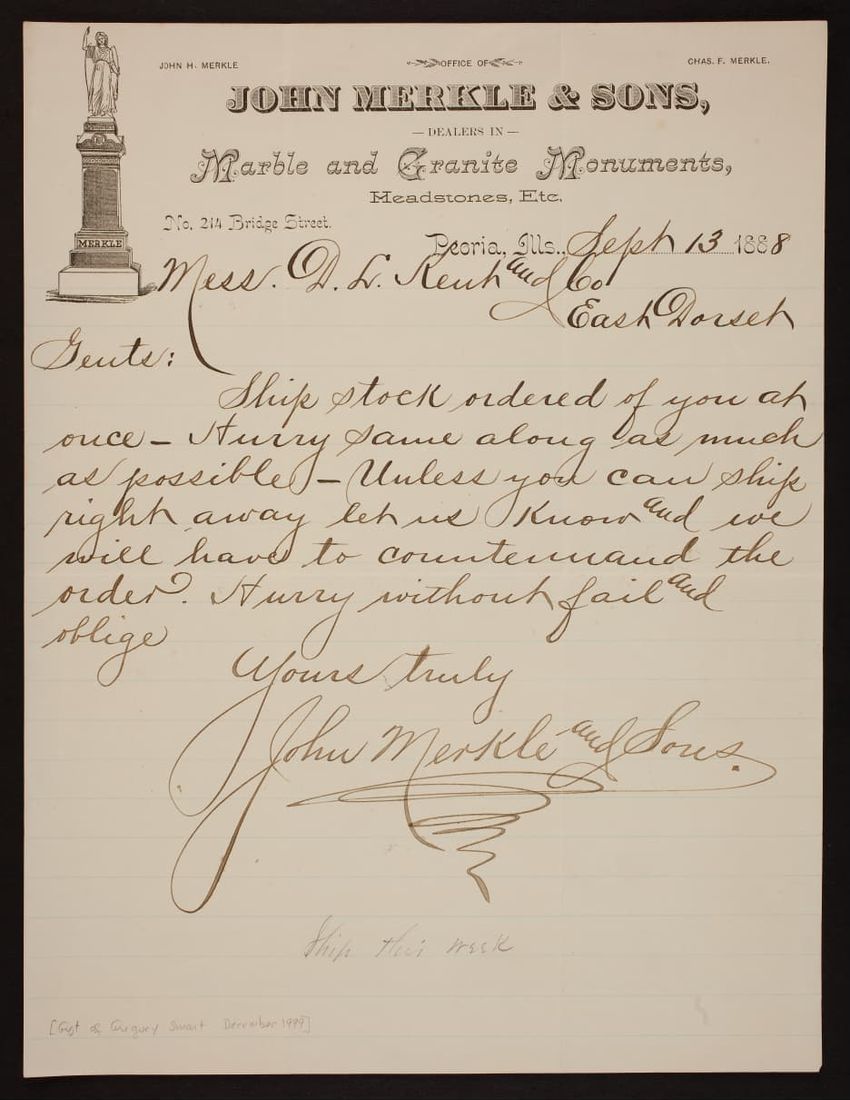 JOHN H. MERKLE
OFFICE OF
CHAS. F. MERKLE.
JOHN MERKLE & SONS,
— DEALERS IN —
Marble and Granite Monuments,
Headstones, Etc.
No. 214 Bridge Street.
MERKLE
Peoria, Ills., Sept 13 1888
Mess. D. L. Kent and Co
East Dorset
Gents:
Ship stock ordered of you at
once – Hurry same along as much
as possible – Unless you can ship
right away let us know and we
will have to countermand the
order. Hurry without fail and
oblige
Yours truly
John Merkle and Sons.
Ship this week
[Gift of Gregory Smart December 1999]